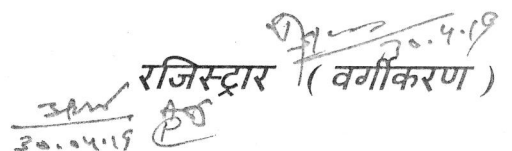 30.4.19
रजिस्ट्रार ( वर्गीकरण )
30.04.19